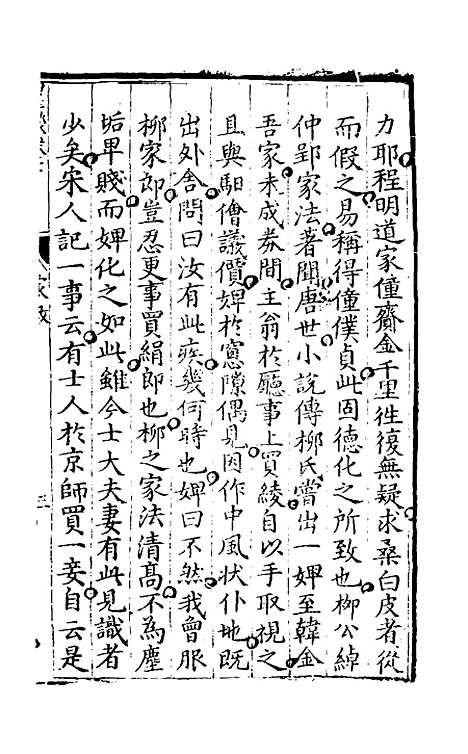 力耶程明道家僮齎金千里徃復無疑求桑白皮者從
而假之易稱得僮僕貞此固德化之所致也柳公綽
仲郢家法著聞唐世小說傳柳氏嘗出一婢至韓金
吾家未成券間主翁於廳事上買綾自以手取視之
且與駔儈議價婢於窻隙偶見因作中風狀仆地既
出外舍問曰汝有此疾幾何時也婢曰不然我曾服
柳家郎豈忍更事買絹郎也柳之家法清髙不為塵
垢卑賤而婢化之如此雖今士大夫妻有此見識者
少矣宋人記一事云有士人於京師買一妾自云是